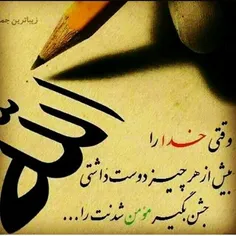 زیباترین جم
الله
وقتی خدا را
بیش از هر چیز دوست داشتی
جشن بگیر مؤمن شدنت را...